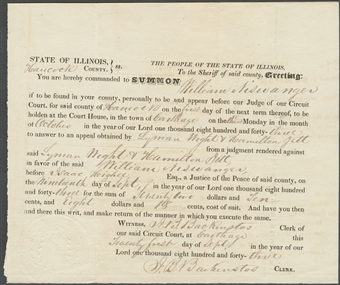 STATE OF ILLINOIS, } ss. THE PEOPLE OF THE STATE OF ILLINOIS,
Hancock COUNTY. To the Sheriff of said county, Greeting:
You are hereby commanded to SUMMON William Niswanger
if to be found in your county, personally to be and appear before our Judge of our Circuit
Court, for said county of Hancock on the first day of the next term thereof, to be
holden at the Court House, in the town of Carthage on the third Monday in the month
of October in the year of our Lord one thousand eight hundred and forty-three
to answer to an appeal obtained by Lyman Wight & Hamilton
from a judgment rendered against
said Lyman Wight & Hamilton
in favor of the said William Niswanger
before Isaac Higbee Esq., a Justice of the Peace of said county, on
the Nineteenth day of Sept in the year of our Lord one thousand eight hundred and
forty-three for the sum of two dollars and Ten
cents, and Eight dollars and cents, cost of suit. And have you then
and there this writ, and make return of the manner in which you execute the same.
WITNESS, J B Backinstos Clerk of
our said Circuit Court, at Carthage this
Twenty first day of Sept in the year of our
Lord one thousand eight hundred and forty-three
J. B. Backinstos CLERK.